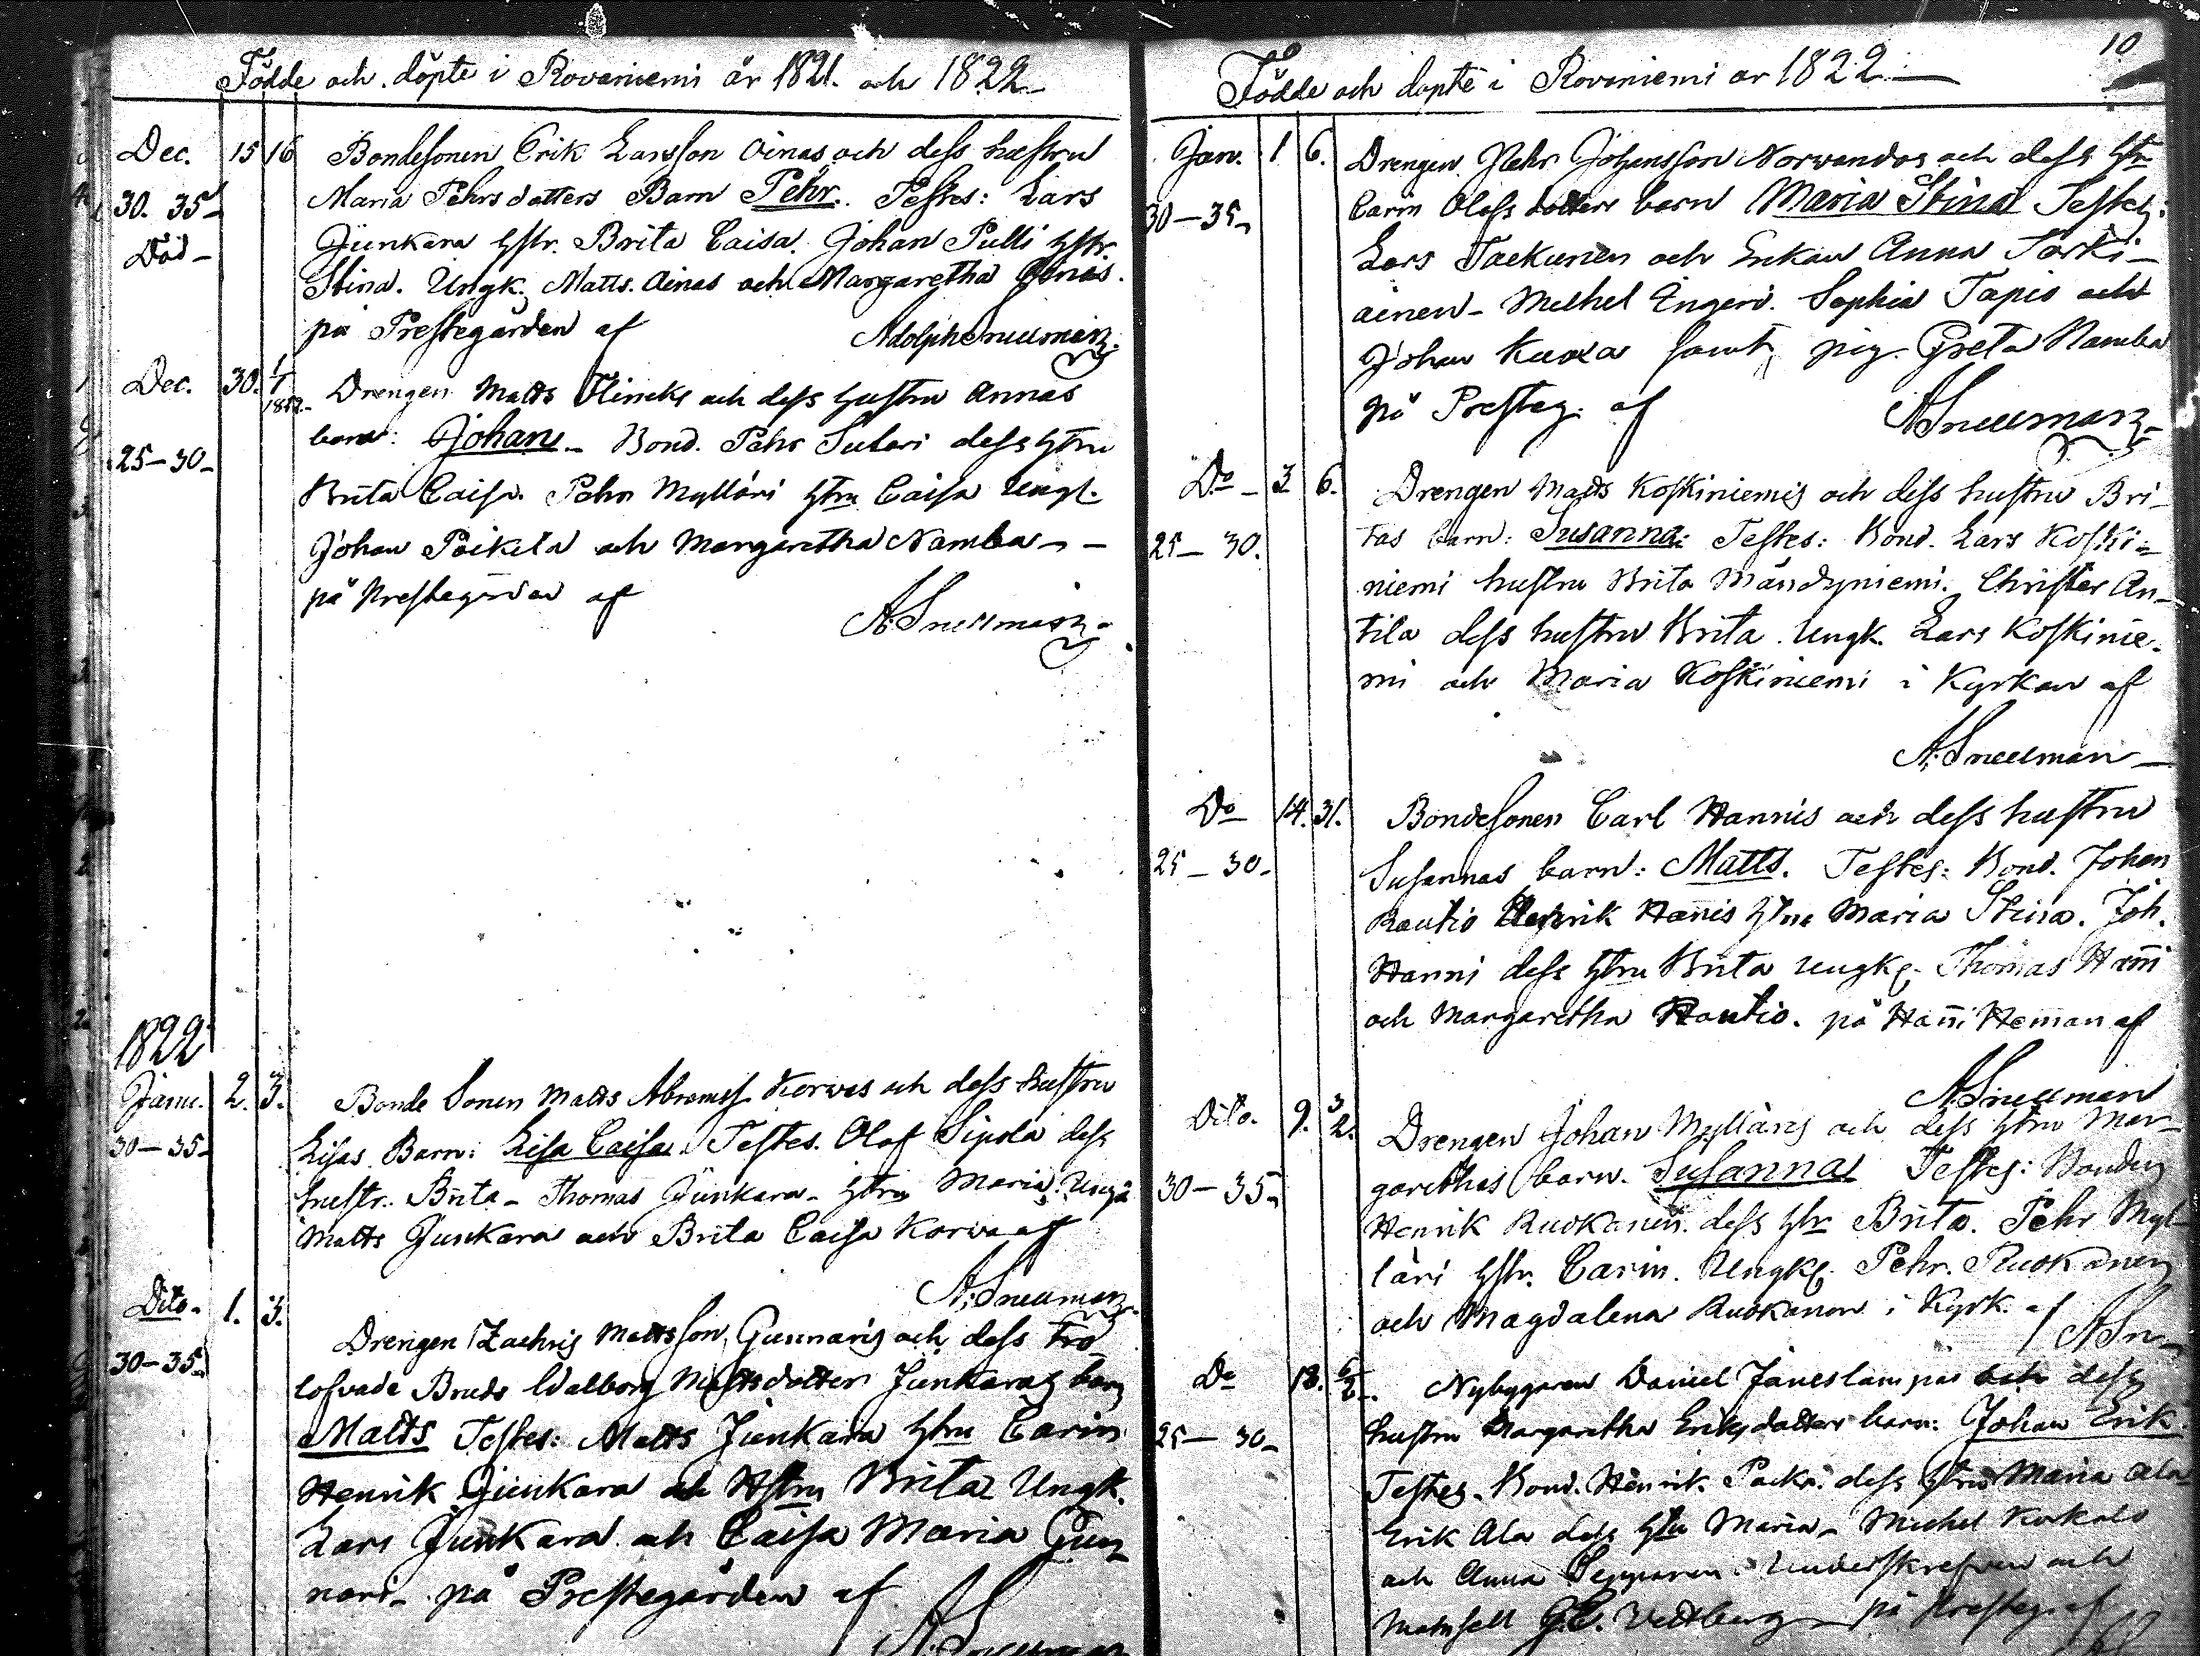 Födde och döpte i Rovaniemi år 1821. och 1822
Dec. 15 16 Bondesonen Erik Larsson Oinas och dess hustru
30. 35 Maria Pehrsdotters Barn Pehr. Testes: Lars
Död Junkara hstr. Brita Caisa. Johan Pulli hstr.
Stina. Ungk. Matts Oinas och Margaretha Oinas.
på Prestegården af Adolph Snellman.
Dec. 30. 1/1 1822. Drengen Matts Flincks och dess hustru Annas
barn: Johan. Bond. Pehr Sutari dess hstru
25-30 Brita Caisa. Pehr Mylläri hstru Caisa Ungk.
Johan Poikela och Margaretha Namba
på Prestegården af
A. Snellman
1822
Janu. 2. 3. Bonde Sonen Matts Abramss. Korvas och dess hustru
30-35 Lisas Barn: Lisa Caisa. Testes. Olof Sipola dess
hustr. Brita - Thomas Junkara - hstru Maria. Ungk
Matts Junkara och Brita Caisa Korva af
A. Snellman
Dito 1. 3. Drengen Zachris Mattsson Gunnaris och dess tro
30-35 lofvade Bruds Walborg Mattsdotter Junkaras barn
Matts Testes: Matts Junkara hstru Carin
Henrik Junkara och Hstru Brita Ungk.
Lars Junkara och Caisa Maria Gun
nari på Prestegården af
A. Snellman
10
Födde och döpte i Rovaniemi år 1822
Jan. 1 6. Drengen Pehr Johansson Norvandas och dess hstr
30-35 Carin Olofsdotters barn Maria Stina Testes:
Lars och Enkan Anna Särki-
ainen - Michel Sophia Tapio och
Johan samt pig. Greta Namba
på Presteg. af A. Snellman
Do 3 6. Drengen Matts Koskiniemis och dess hustru Bri-
25-30. tas barn: Susanna: Testes: Bond. Lars Koski-
niemi hustru Brita Mändyniemi. Christer An-
tila dess hustru Brita Ungk. Lars Koskinie-
mi och Maria Koskiniemi i Kyrkan af
A. Snellman
Do 14. 31. Bondesonen Carl Hannis och dess hustru
25-30 Susannas barn: Matts. Testes: Bond. Johan
Rautio Henrik Hannis hstru Maria Stina. Joh.
Hanni dess hstru Brita Ungk. Thomas Hanni
och Margaretha Rautio. på Hanni Heman af
A. Snellman
Dito. 9. 3/2. Drengen Johan Mylläris och dess hstru Mar-
30-35 garethas barn. Susanna Testes: Bonden
Henrik Ruokanen. dess hstr Brita. Pehr Myl-
läri hstr. Carin. Ungk. Pehr Ruokanen
och Magdalena Ruokanen i Kyrk. af
A. Sn
Do 18. Nybyggaren Daniel Jäneslampis och dess
25-30 hustru Margaretha Eriksdotters barn: Johan Erik.
Testes. Bond. Henrik dess hstru Maria Ala
Erik Ala dess hstru Maria - Michel Korkalo
och Anna Underskrefven och
Mamsell G.C. Wedtberg på Presteg. af